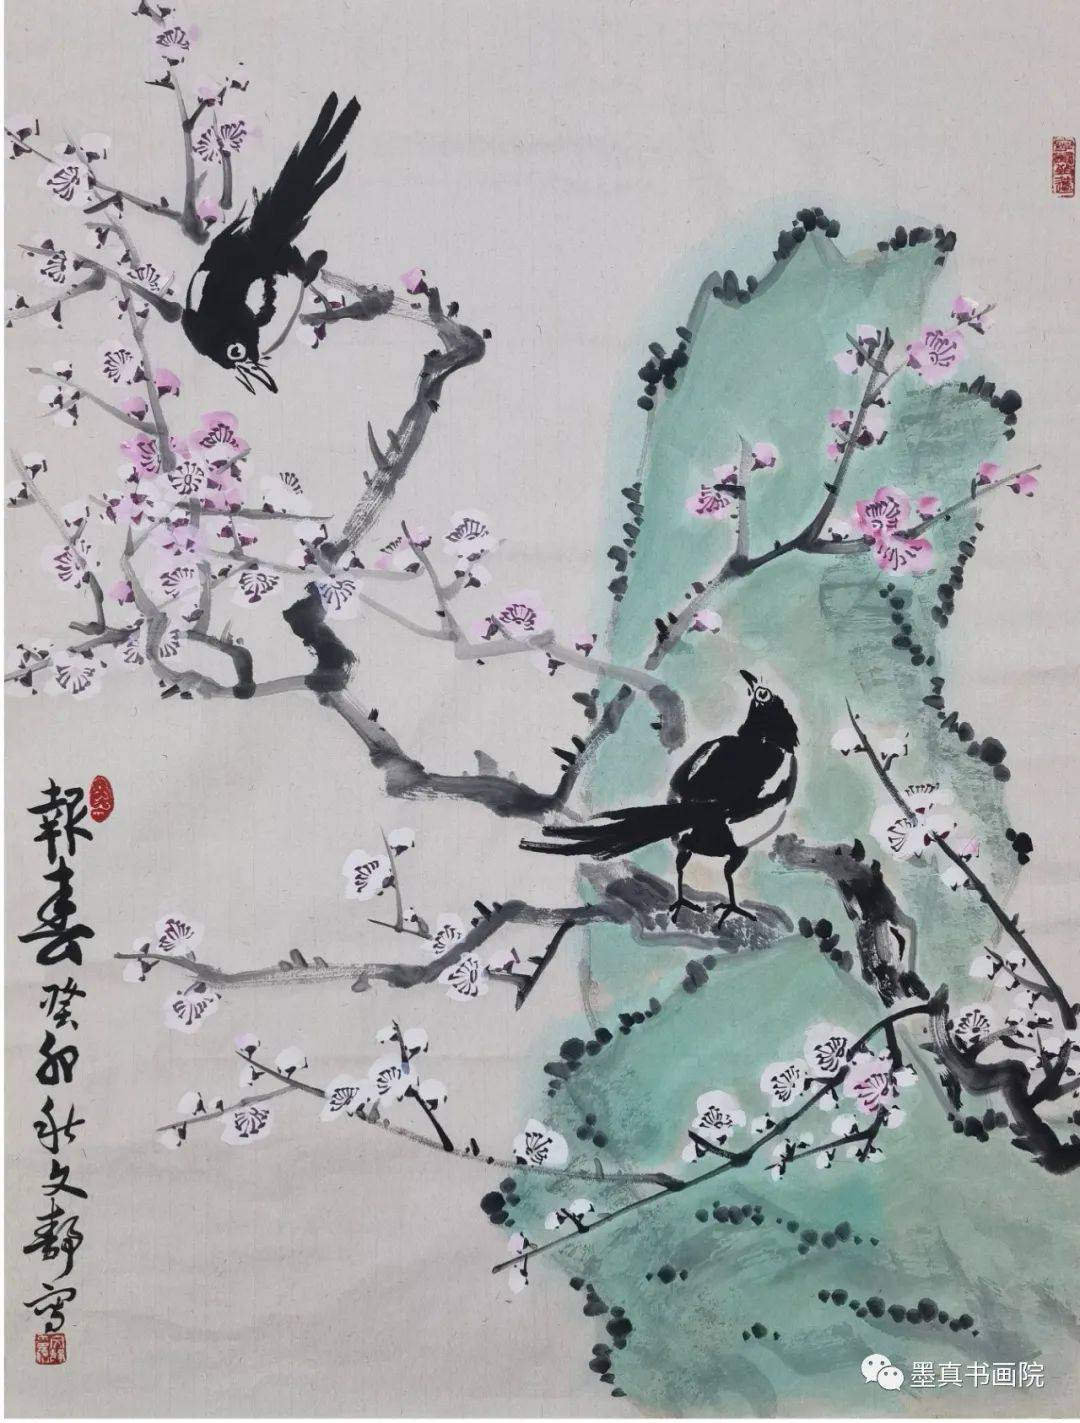 報春癸卯秋文静寫
墨真书画院